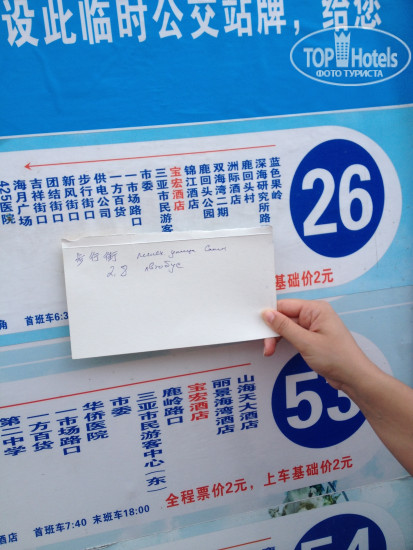 设此临时公交站牌，给您
TOP Hotels
ФОТО ТУРИСТА
425医院
海月广场
吉祥街口
团结街口
新风街口
步行街口
供电公司
一方百货
一市场路口
市委
三亚市民游
宝宏酒店
锦江酒店
鹿回头公园
双海湾二期
洲际酒店
鹿回头村
深海研究所路
蓝色果岭
26
基础价2元
角 首班车6:3
улица
28 автобус
第一中学
一方百货
一市场路口
华侨医院
市委
三亚市民游客中心（东）
鹿岭路口
宝宏酒店
丽景海湾酒店
山海天大酒店
53
全程票价2元，上车基础价2元
酒店 首班车7:40 末班车18:00
54